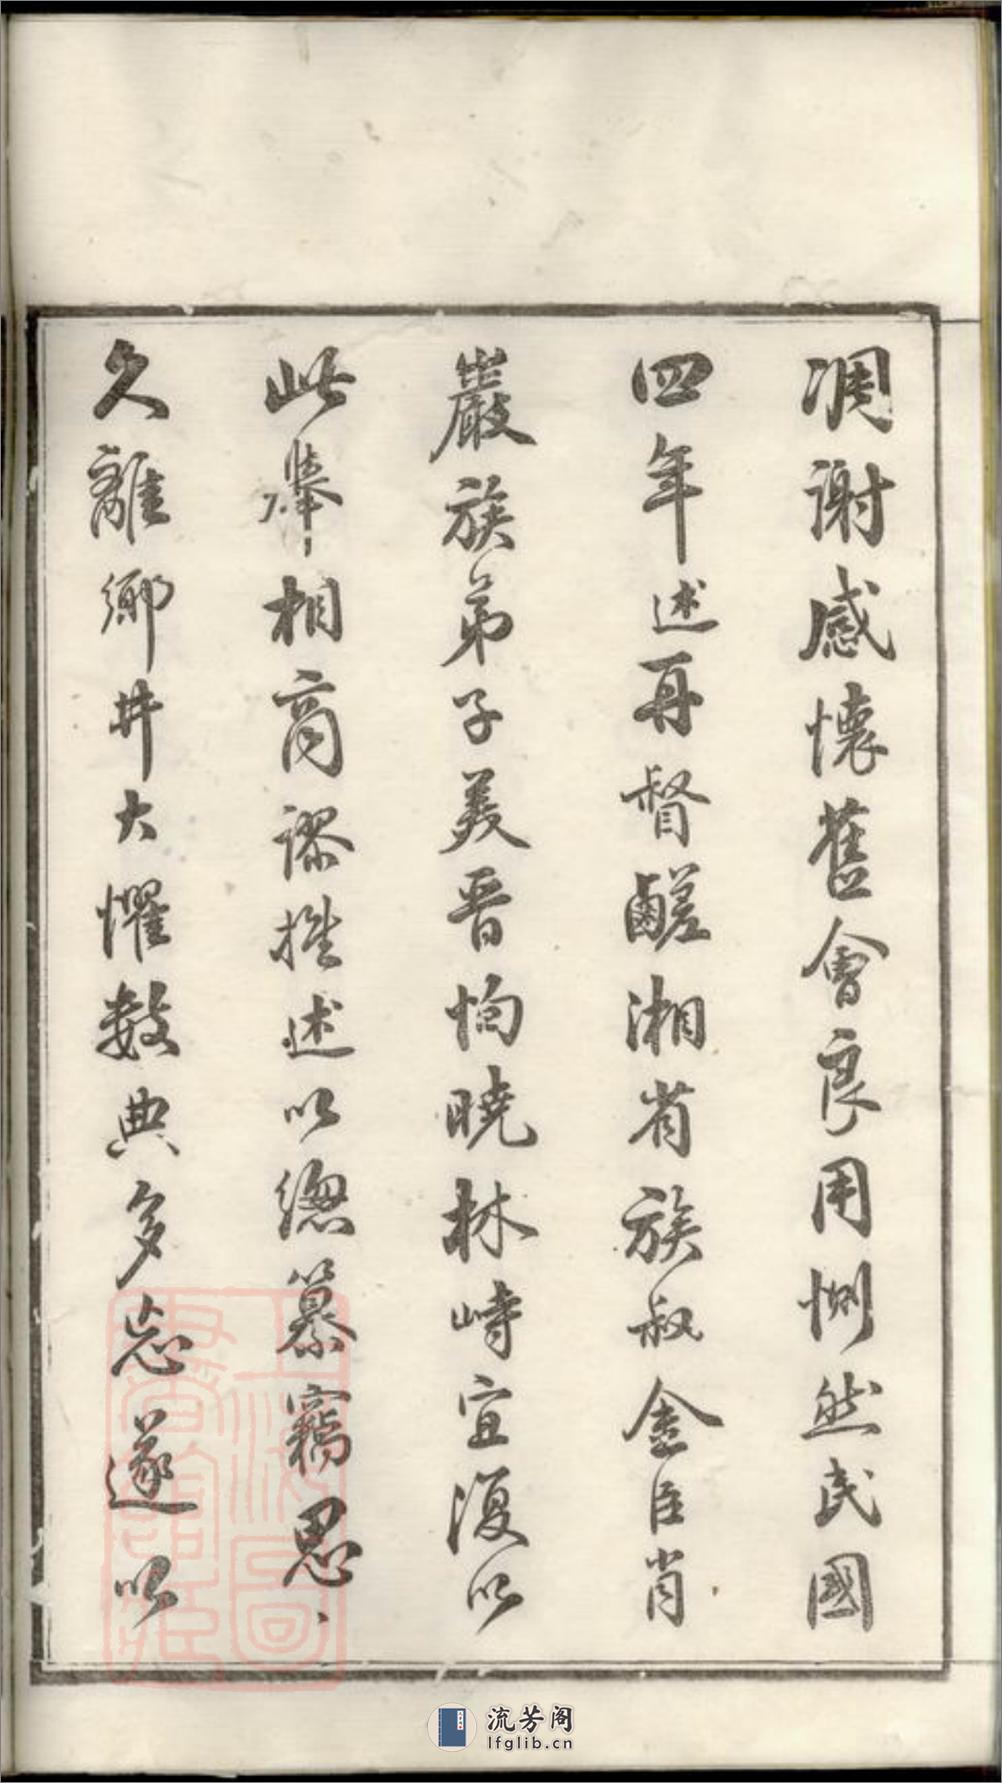 凋謝感懷舊會良用惻然民國
四年述再督鹾湘省族叔金臣肖
巖族弟子美晋恂曉林峙宜復以
此舉相商謬推述以總纂竊思
久離鄉井大懼數典多忘遂以
上海圖書館藏
流芳阁
lfglib.cn